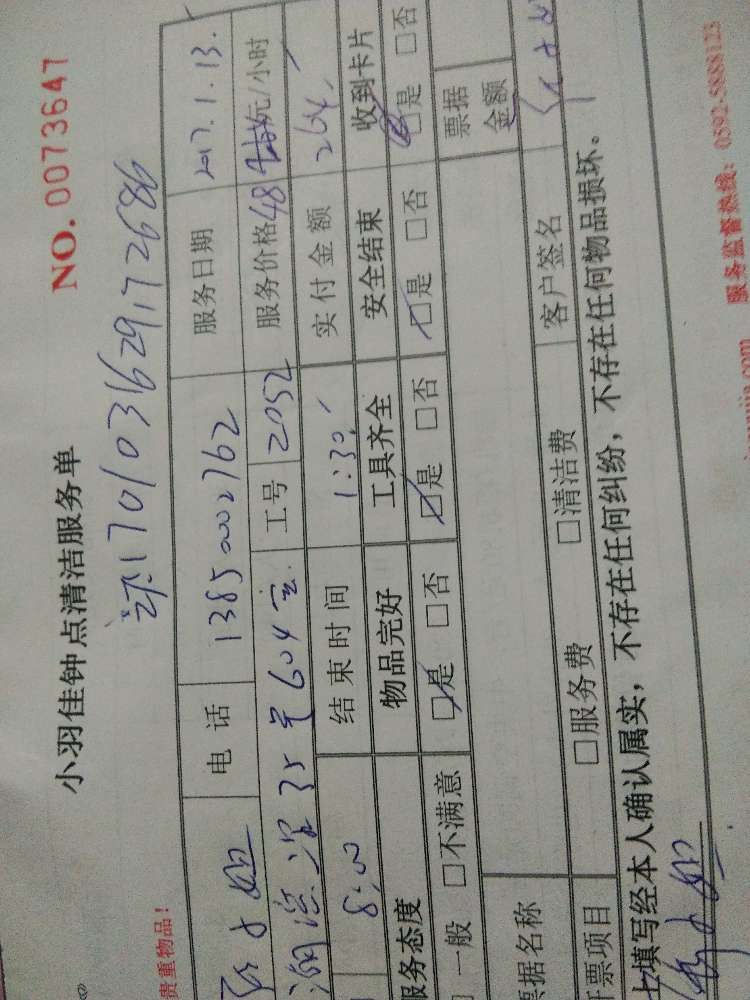 小羽佳钟点清洁服务单
NO. 0073647
1701031629172686
贵重物品!
电话 13850002762 服务日期 2017.1.13.
35号604室 工号 2052 服务价格 48 元/小时
8:00 结束时间 1:30 实付金额 264
服务态度 物品完好 工具齐全 安全结束 收到卡片
一般 □不满意 □是 □否 □是 □否 □是 □否 □是 □否
票据名称 票据金额
票项目 □服务费 □清洁费 客户签名
上填写经本人确认属实,不存在任何纠纷,不存在任何物品损坏。
服务监督热线:0592-5888123